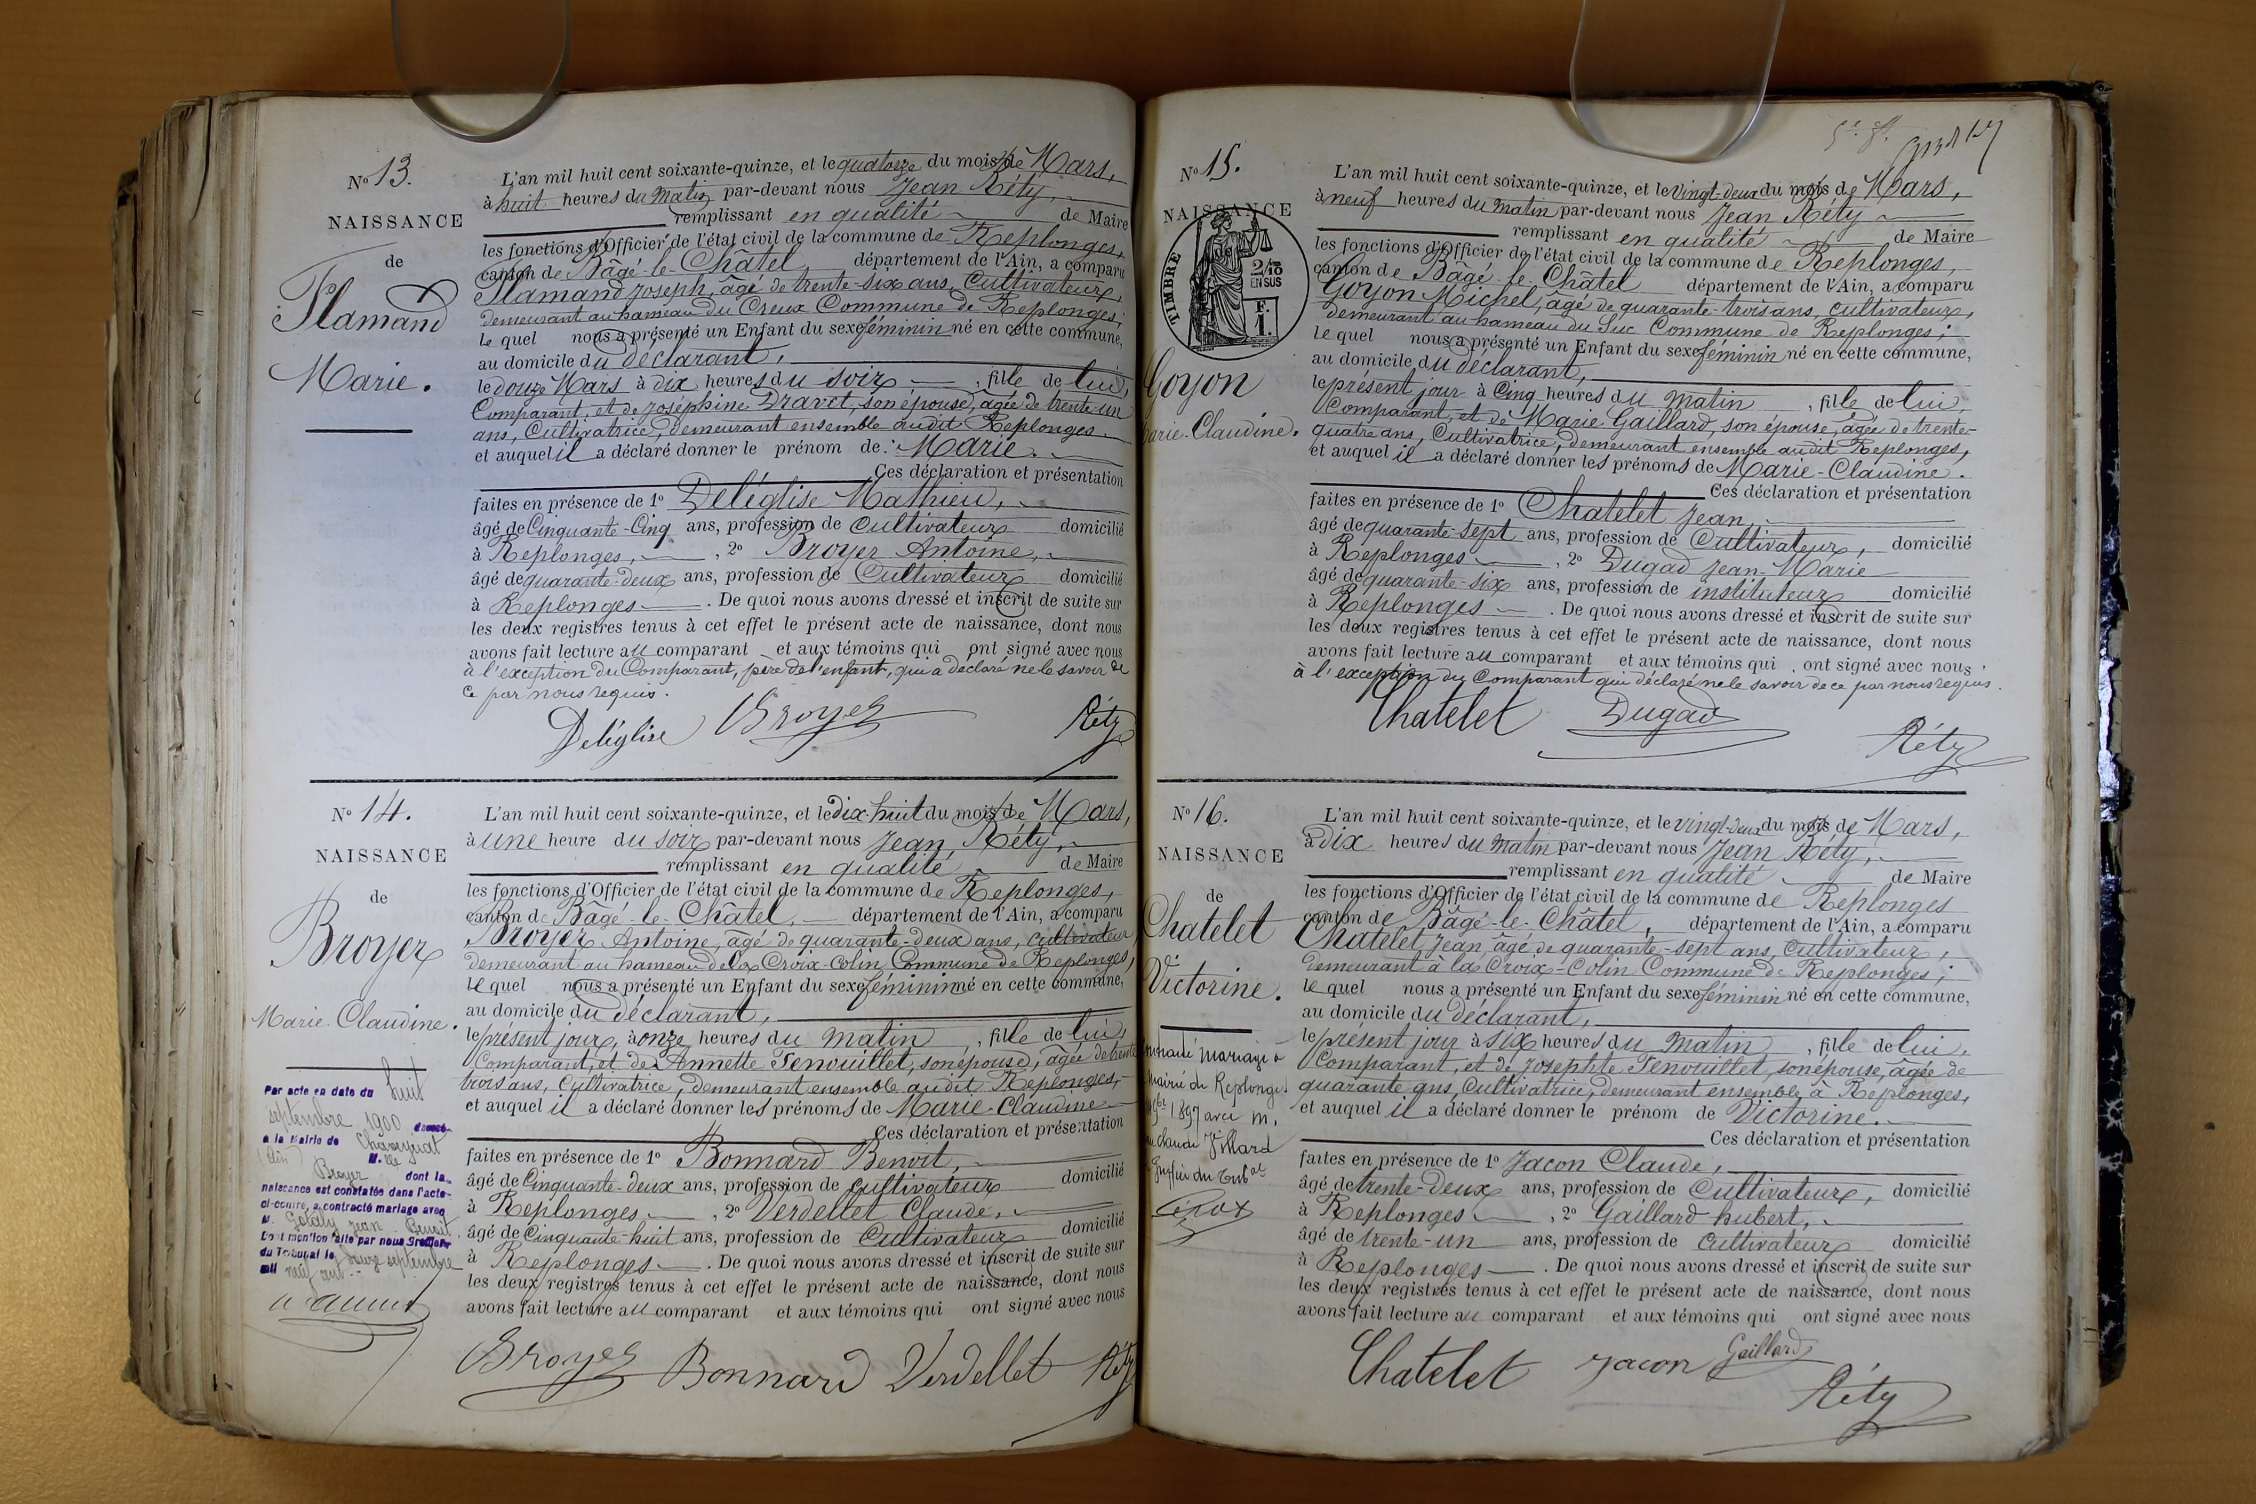 N° 13.
NAISSANCE
de
Flamand
Marie.
L'an mil huit cent soixante-quinze, et le quatorze du mois de Mars,
à huit heures du matin par-devant nous Jean Réty,
remplissant en qualité de Maire
les fonctions d'Officier de l'état civil de la commune de Replonges,
canton de Bâgé-le-Châtel département de l'Ain, a comparu
Flamand Joseph, âgé de trente-six ans, Cultivateur,
demeurant au hameau du Creux Commune de Replonges;
le quel nous a présenté un Enfant du sexe féminin né en cette commune,
au domicile du déclarant,
le douze Mars à dix heures du soir, fille de lui,
Comparant, et de Joséphine Dravet, son épouse, âgée de trente-un
ans, Cultivatrice, demeurant ensemble audit Replonges
et auquel il a déclaré donner le prénom de: Marie.
Ces déclaration et présentation
faites en présence de 1° Deléglise Mathieu,
âgé de Cinquante-Cinq ans, profession de Cultivateur domicilié
à Replonges, , 2° Broyer Antoine,
âgé de quarante-deux ans, profession de Cultivateur domicilié
à Replonges . De quoi nous avons dressé et inscrit de suite sur
les deux registres tenus à cet effet le présent acte de naissance, dont nous
avons fait lecture au comparant et aux témoins qui ont signé avec nous
à l'exception du Comparant, père de l'enfant, qui a déclaré ne le savoir de
ce par nous requis.
Deléglise Broyer Réty
N° 14.
NAISSANCE
de
Broyer
Marie-Claudine.
Par acte en date du huit
septembre 1900 dressé
à la Mairie de
(Ain) M.lle
Broyer dont la
naissance est constatée dans l'acte
ci-contre, a contracté mariage avec
M. Jean Benoit
Dont mention faite par nous Greffier
du Tribunal le septembre
mil neuf cent
L'an mil huit cent soixante-quinze, et le dix-huit du mois de Mars,
à une heure du soir par-devant nous Jean Réty,
remplissant en qualité de Maire
les fonctions d'Officier de l'état civil de la commune de Replonges,
canton de Bâgé-le-Châtel, département de l'Ain, a comparu
Broyer Antoine, âgé de quarante-deux ans, cultivateur
demeurant au hameau de la Croix-Colin Commune de Replonges,
le quel nous a présenté un Enfant du sexe féminin né en cette commune,
au domicile du déclarant,
le présent jour, à onze heures du matin, fille de lui,
Comparant, et de Annette Tenouillet, son épouse, âgée de trente
trois ans, Cultivatrice, demeurant ensemble audit Replonges,
et auquel il a déclaré donner les prénoms de Marie-Claudine
Ces déclaration et présentation
faites en présence de 1° Bonnard Benoit,
âgé de Cinquante-deux ans, profession de Cultivateur domicilié
à Replonges , 2° Verdellet Claude,
âgé de Cinquante-huit ans, profession de Cultivateur domicilié
à Replonges . De quoi nous avons dressé et inscrit de suite sur
les deux registres tenus à cet effet le présent acte de naissance, dont nous
avons fait lecture au comparant et aux témoins qui ont signé avec nous
Broyer Bonnard Verdellet Réty
N° 15.
NAISSANCE
TIMBRE
2/10
EN SUS
F.
1.
Goyon
Marie-Claudine.
L'an mil huit cent soixante-quinze, et le vingt-deux du mois de Mars,
à neuf heures du matin par-devant nous Jean Réty
remplissant en qualité de Maire
les fonctions d'Officier de l'état civil de la commune de Replonges,
canton de Bâgé-le-Châtel département de l'Ain, a comparu
Goyon Michel, âgé de quarante-trois ans, cultivateur,
demeurant au hameau du Suc Commune de Replonges;
le quel nous a présenté un Enfant du sexe féminin né en cette commune,
au domicile du déclarant,
le présent jour à Cinq heures du matin, fille de lui,
Comparant, et de Marie Gaillard, son épouse, âgée de trente-
quatre ans, Cultivatrice, demeurant ensemble audit Replonges,
et auquel il a déclaré donner les prénoms de Marie-Claudine.
Ces déclaration et présentation
faites en présence de 1° Chatelet Jean,
âgé de quarante-sept ans, profession de Cultivateur, domicilié
à Replonges , 2° Dugad Jean-Marie
âgé de quarante-six ans, profession de instituteur domicilié
à Replonges . De quoi nous avons dressé et inscrit de suite sur
les deux registres tenus à cet effet le présent acte de naissance, dont nous
avons fait lecture au comparant et aux témoins qui ont signé avec nous
à l'exception du Comparant qui déclaré ne le savoir de ce par nous requis.
Chatelet Dugad Réty
N° 16.
NAISSANCE
de
Chatelet
Victorine.
mariage à
mairie de Replonges
1897 avec M.
Claude Villard
Greffier du Trib.al
L'an mil huit cent soixante-quinze, et le vingt-deux du mois de Mars,
à dix heures du matin par-devant nous Jean Réty,
remplissant en qualité de Maire
les fonctions d'Officier de l'état civil de la commune de Replonges
canton de Bâgé-le-Châtel, département de l'Ain, a comparu
Chatelet Jean, âgé de quarante-sept ans, Cultivateur,
demeurant à la Croix-Colin Commune de Replonges;
le quel nous a présenté un Enfant du sexe féminin né en cette commune,
au domicile du déclarant,
le présent jour à six heures du matin, fille de lui,
Comparant, et de Josephte Tenouillet, son épouse, âgée de
quarante ans, Cultivatrice, demeurant ensemble à Replonges,
et auquel il a déclaré donner le prénom de Victorine.
Ces déclaration et présentation
faites en présence de 1° Jacon Claude,
âgé de trente-deux ans, profession de Cultivateur, domicilié
à Replonges , 2° Gaillard hubert,
âgé de trente-un ans, profession de Cultivateur domicilié
à Replonges . De quoi nous avons dressé et inscrit de suite sur
les deux registres tenus à cet effet le présent acte de naissance, dont nous
avons fait lecture au comparant et aux témoins qui ont signé avec nous
Chatelet Jacon Gaillard
Réty